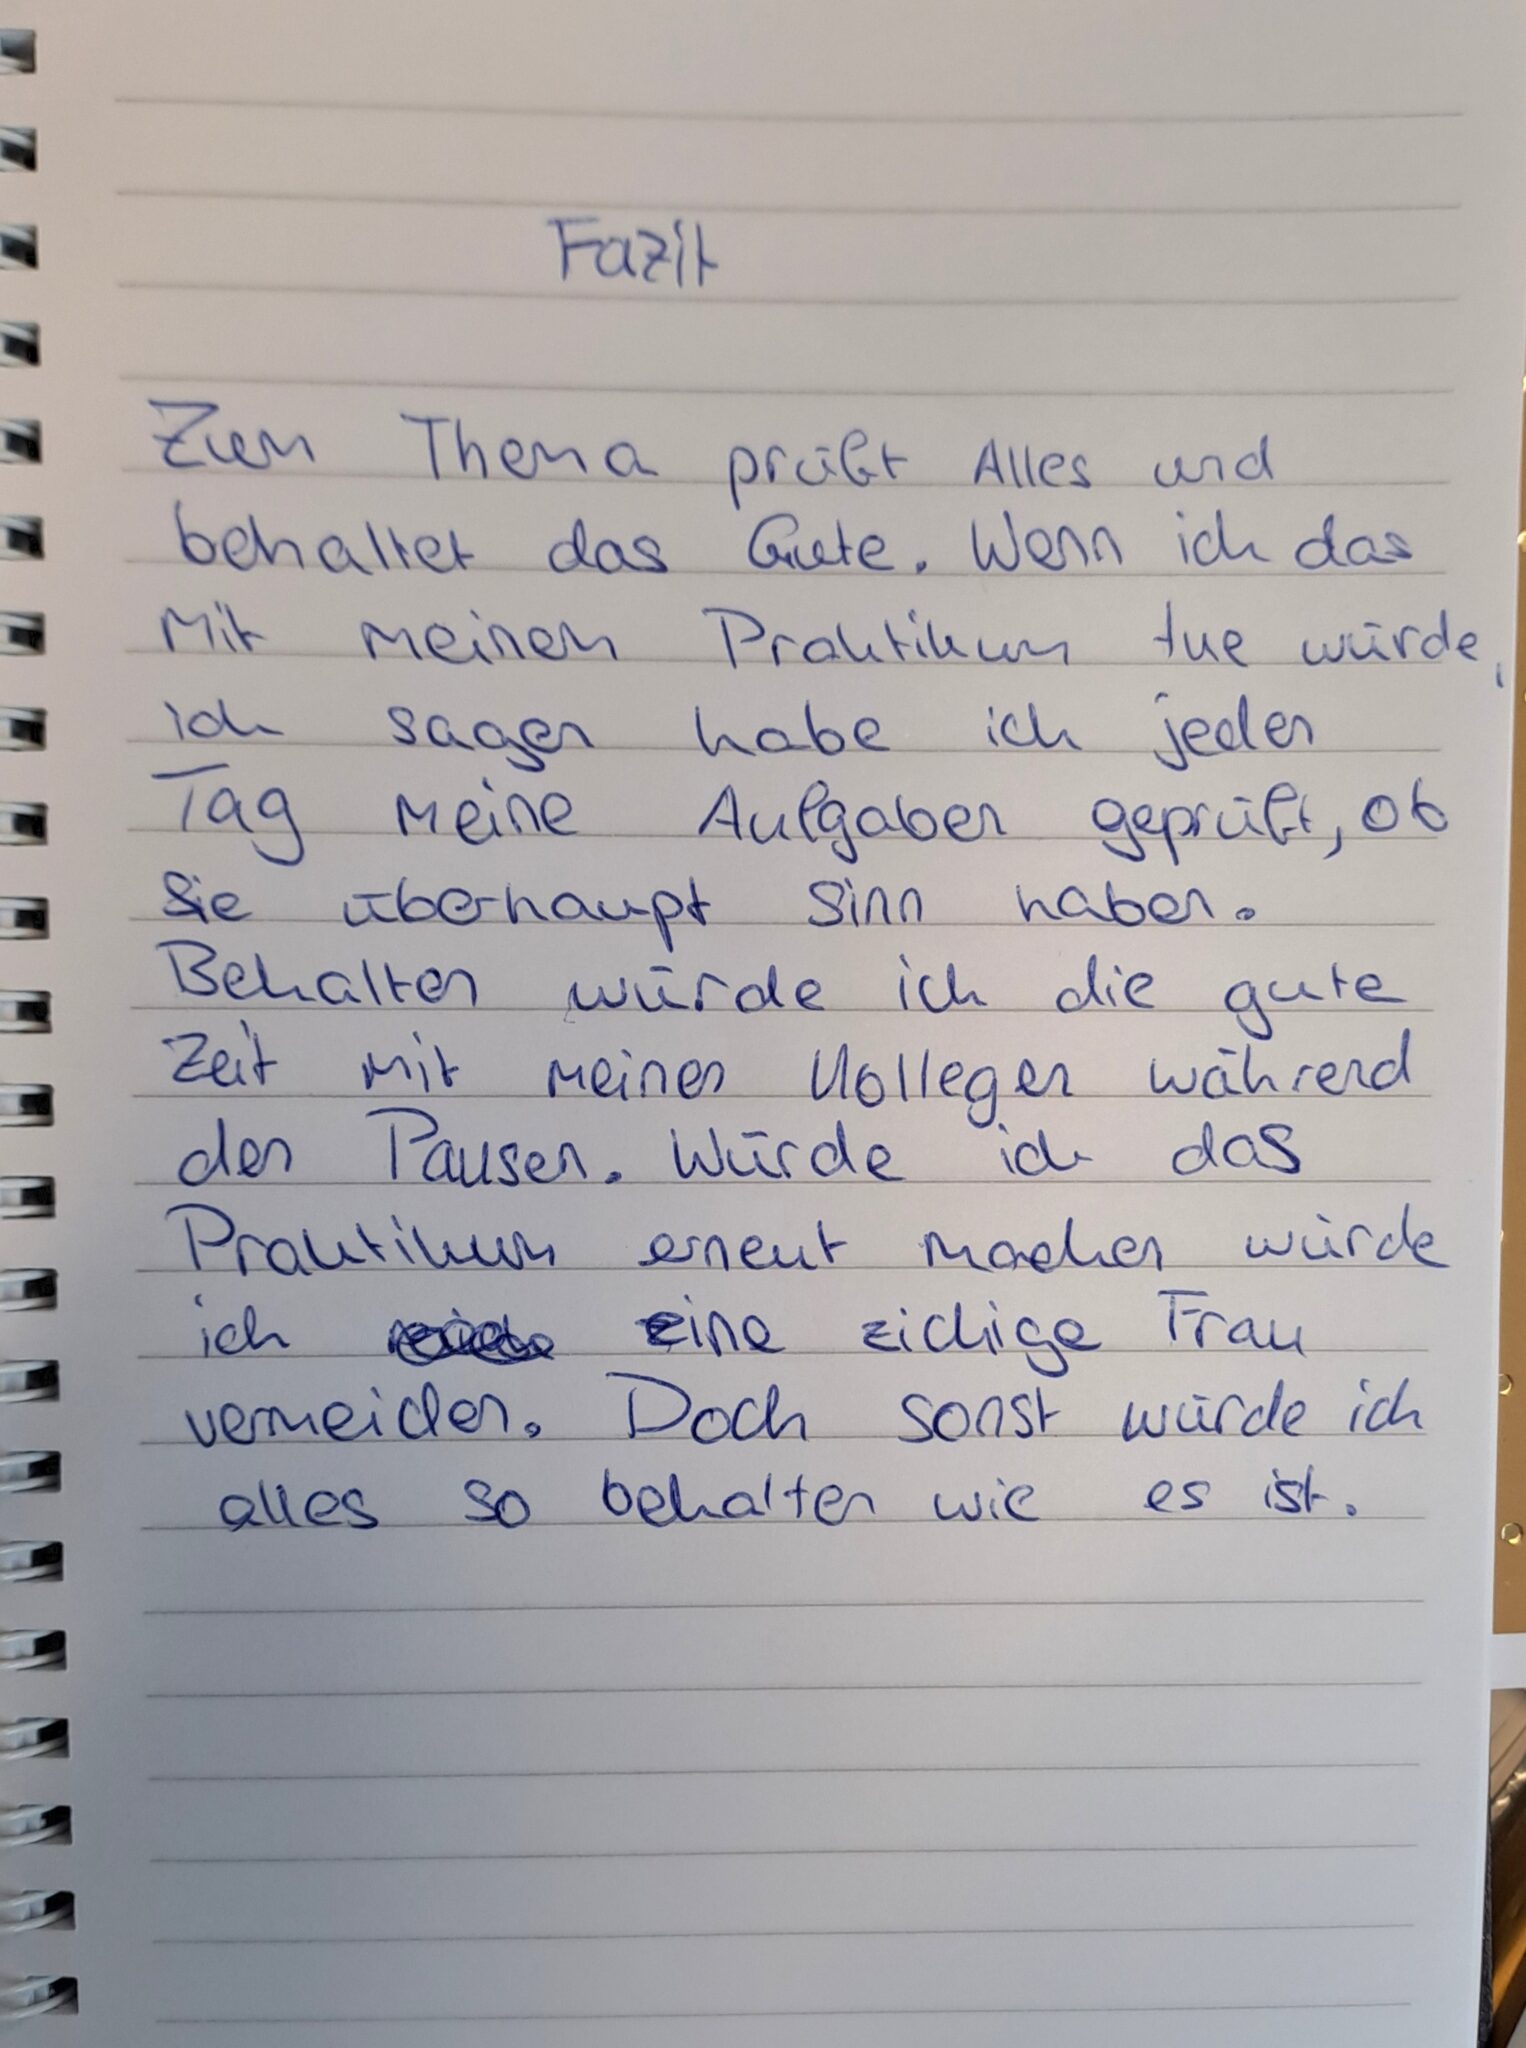 Fazit
Zum Thema prüft Alles und
behaltet das Gute. Wenn ich das
mit meinem Praktikum tue würde,
ich sagen habe ich jeden
Tag meine Aufgaben geprüft, ob
Sie überhaupt Sinn haben.
Behalten würde ich die gute
Zeit mit meinen Kollegen während
den Pausen. Würde ich das
Praktikum erneut machen würde
ich eine zickige Frau
vermeiden. Doch sonst würde ich
alles so behalten wie es ist.